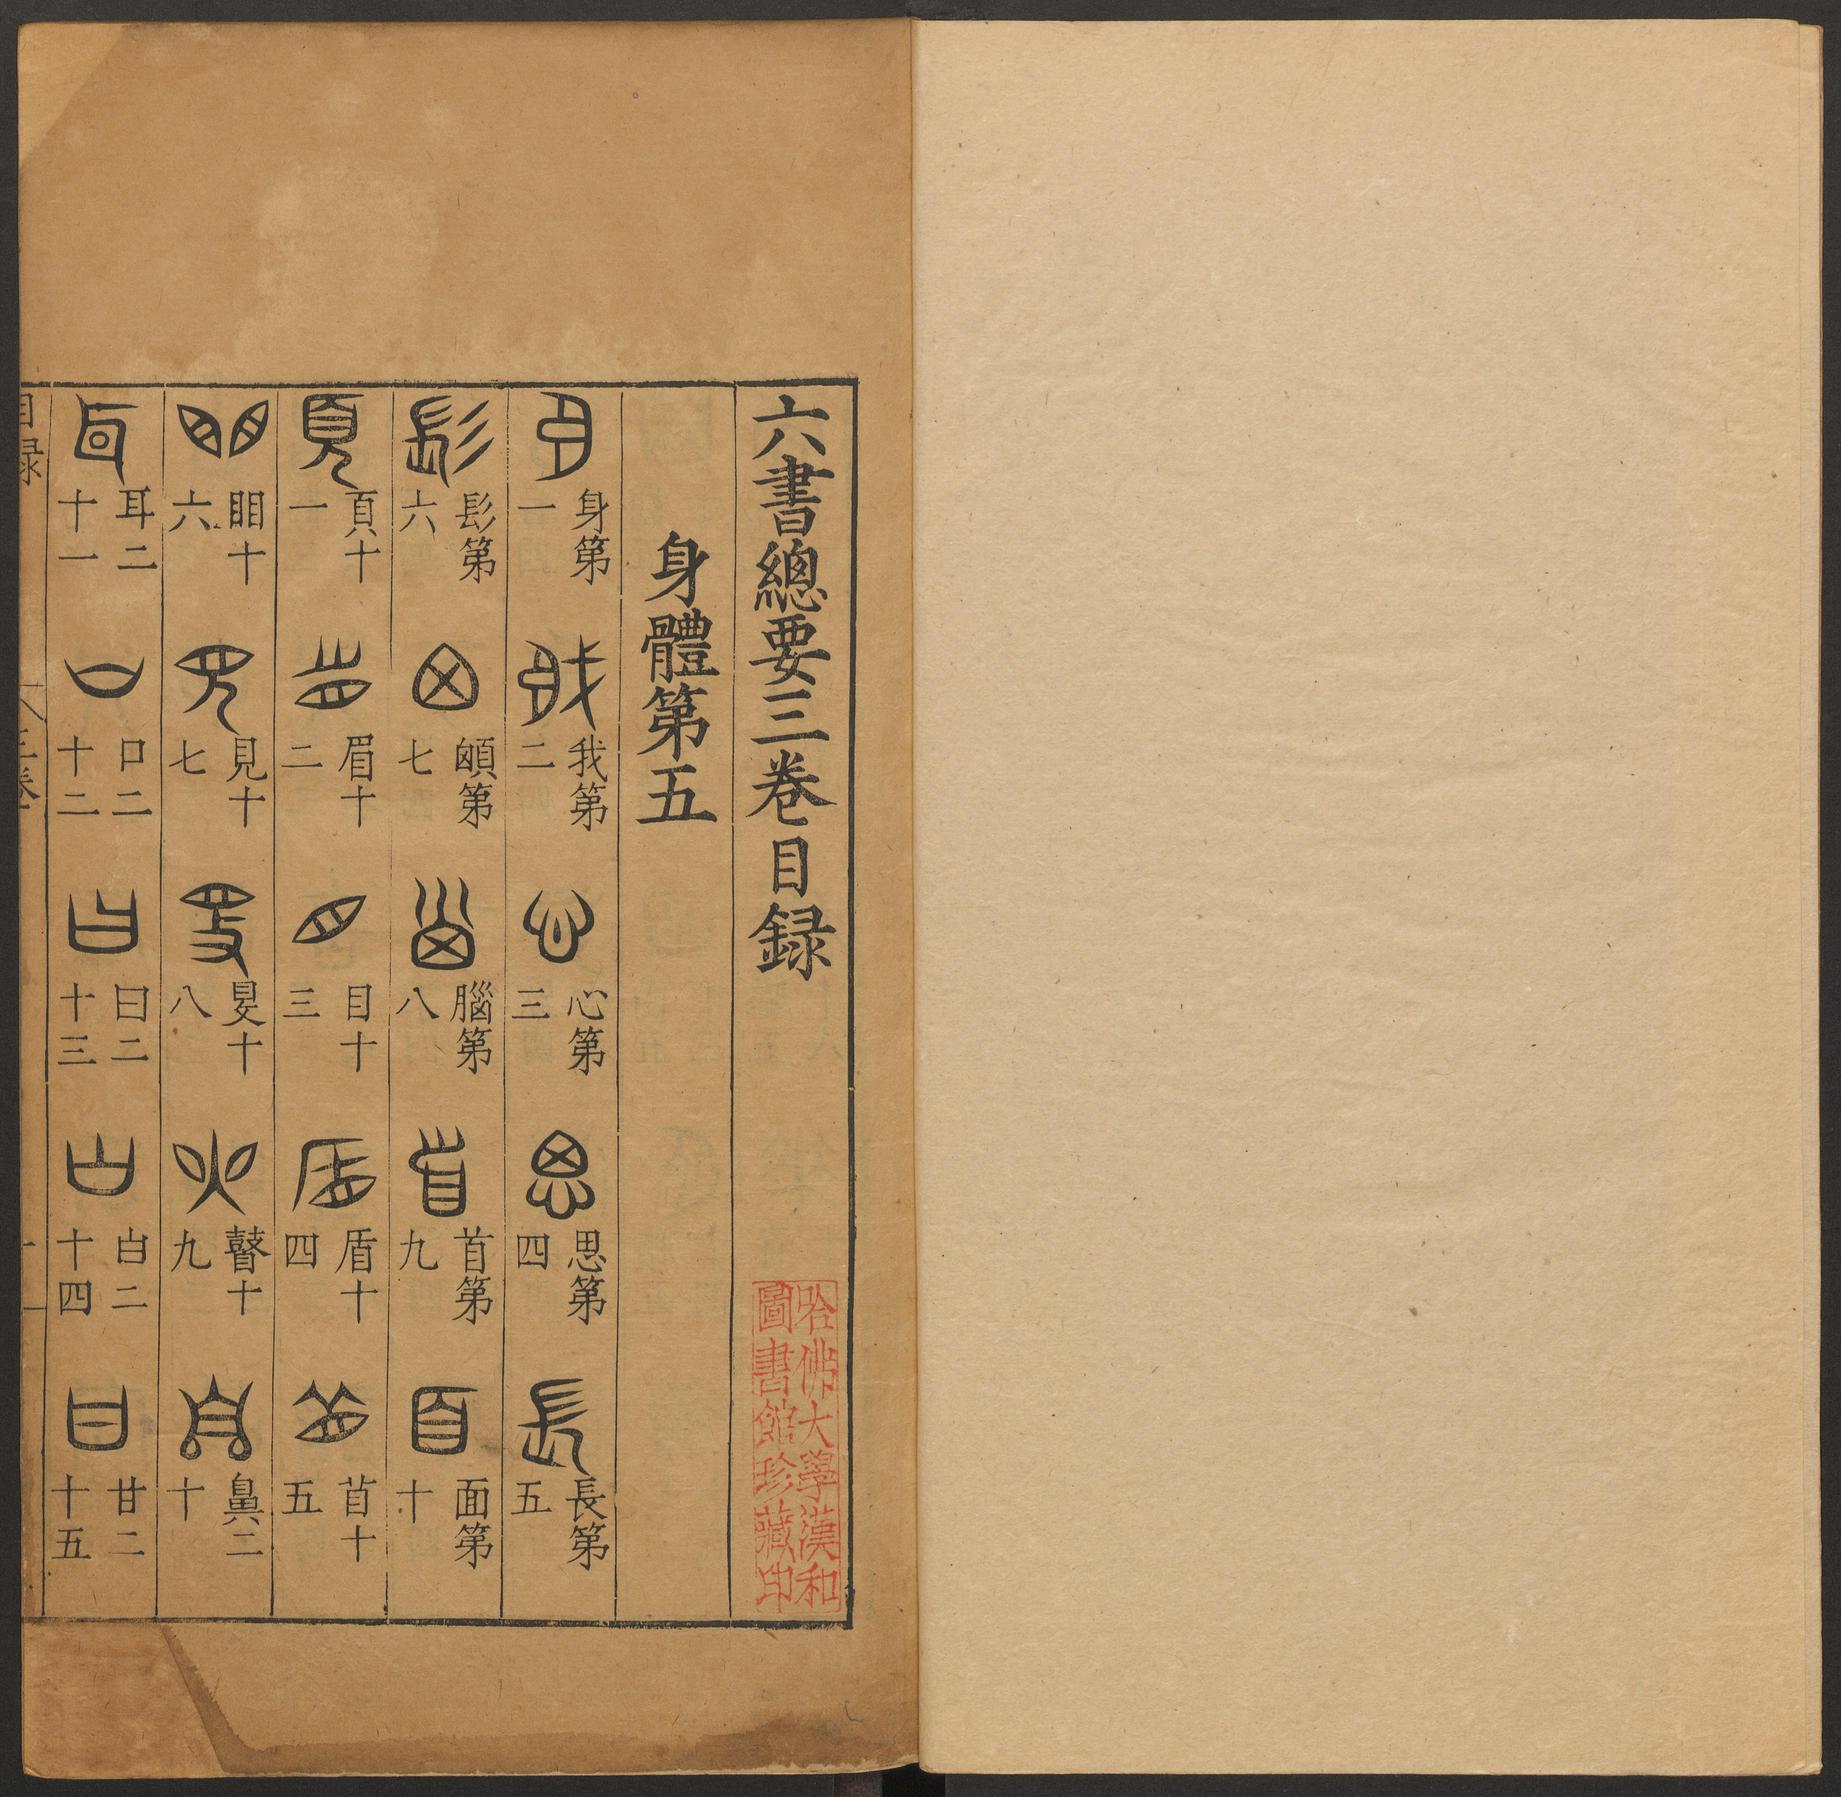 六書總要三卷目録
身體第五
身第一 我第二 心第三 思第四 長第五
髟第六 䪿第七 腦第八 首第九 面第十
頁十一 眉十二 目十三 盾十四 𥄕十五
䀠十六 見十七 㫐十八 瞽十九 鼻二十
耳二十一 口二十二 曰二十三 白二十四 甘二十五
目録 三卷
哈佛大學漢和
圖書館珍藏印